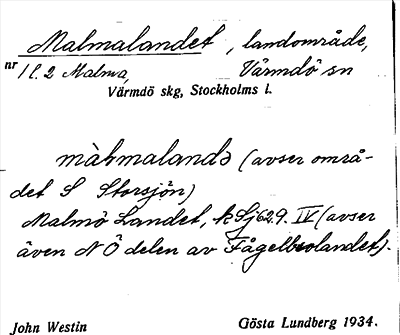 Malmalandet, landområde,
nr 1 l. 2 Malma, Värmdö sn
Värmdö skg, Stockholms l.
màlmalandə (avser områ-
det S Storsjön)
Malmö Landet, kSj 629. IV (avser
även NÖ delen av Fågelbrolandet).
John Westin Gösta Lundberg 1934.